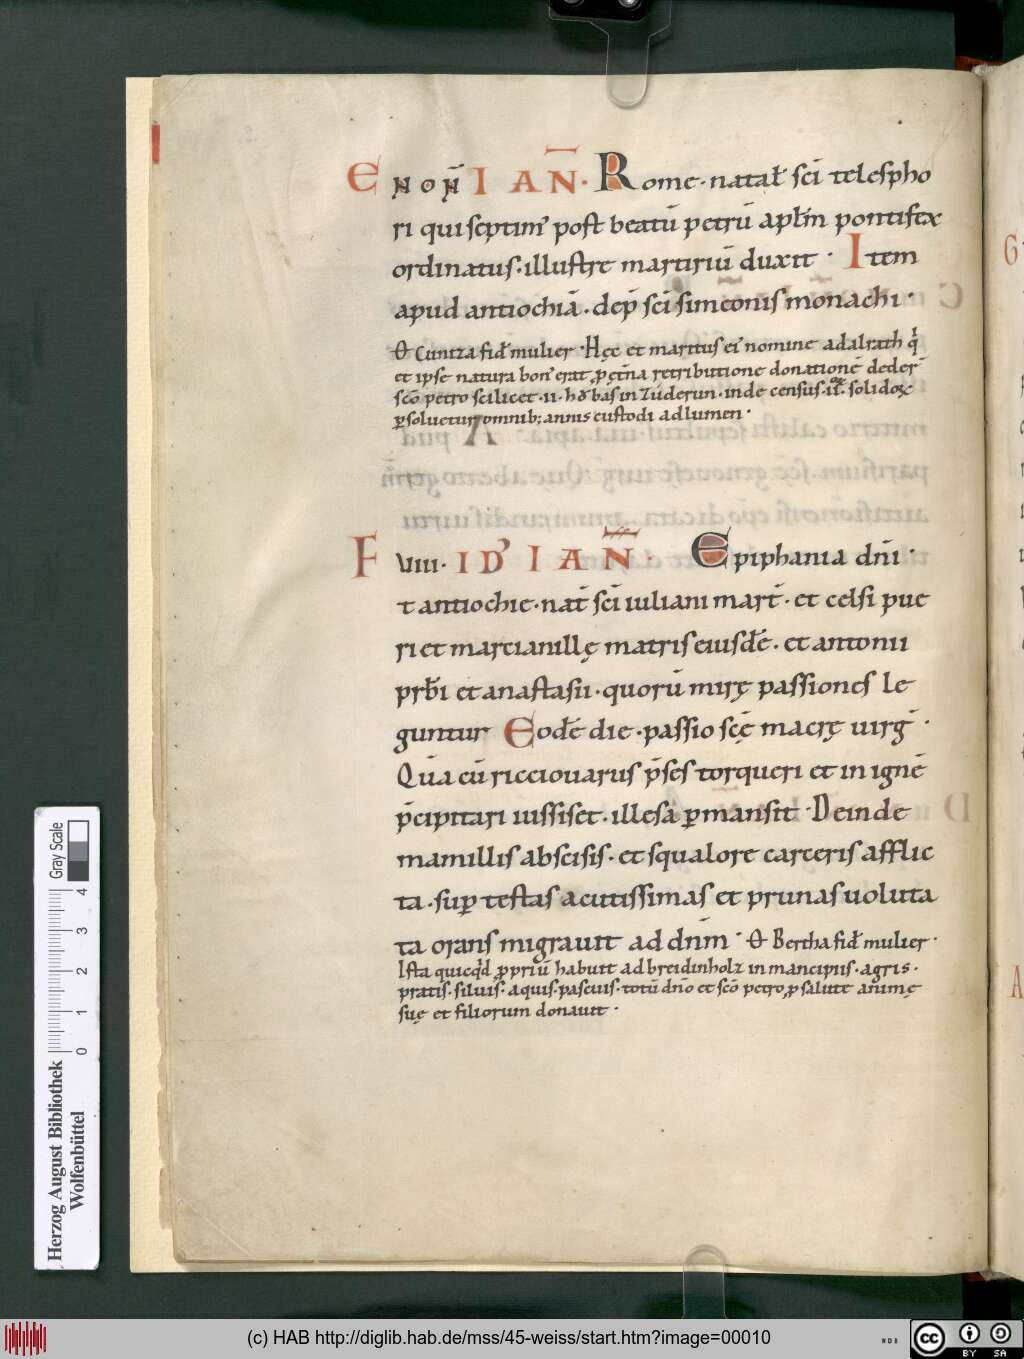 E NON̄ IAN̄. Rome. natał sc̄i telespho
ri qui septim' post beatū petrū aplīn pontifex
ordinatus. illustre martiriū duxit. Item
apud antiochiā. dep̄ sc̄i simeonis monachi.
Ꝋ Cuntza fid' mulier. Hęc et maritus ei' nomine adalrath
et ipse natura bon' erat, p ęt̄na retributione donationē deder̄
sc̄o petro scilicet .ii. hobas in inde census solidos
ꝑsoluetur omnib; annis custodi ad lumen.
F VIII. ID' IAN̄. Epiphania dn̄i.
t antiochie. nat̄ sc̄i iuliani mart̄. et celsi pue
ri et marcianillę matris eiusdē. et antonii
prb̄i et anastasii. quorū mirę passiones le
guntur Eodē die. passio sc̄ę macrę uirḡ.
Quā cū ricciouarus p̄ses torqueri et in ignē
p̄cipitari iussiset. illesa ꝑmansit. Deinde
mamillis abscisis. et squalore carceris afflic
ta. suꝑ testas acutissimas et prunas uoluta
ta orans migrauit ad dn̄m. Ꝋ Bertha fid' mulier.
Ista quicq̄d ꝓpriū habuit ad breidinholz in mancipiis. agris.
pratis. siluis. aquis. pascuis. totū dn̄o et sc̄o petro, ꝓ salute animę
suę et filiorum donauit.
Herzog August Bibliothek
Wolfenbüttel
0 1 2 3 4
Gray Scale
(c) HAB http://diglib.hab.de/mss/45-weiss/start.htm?image=00010
cc BY SA